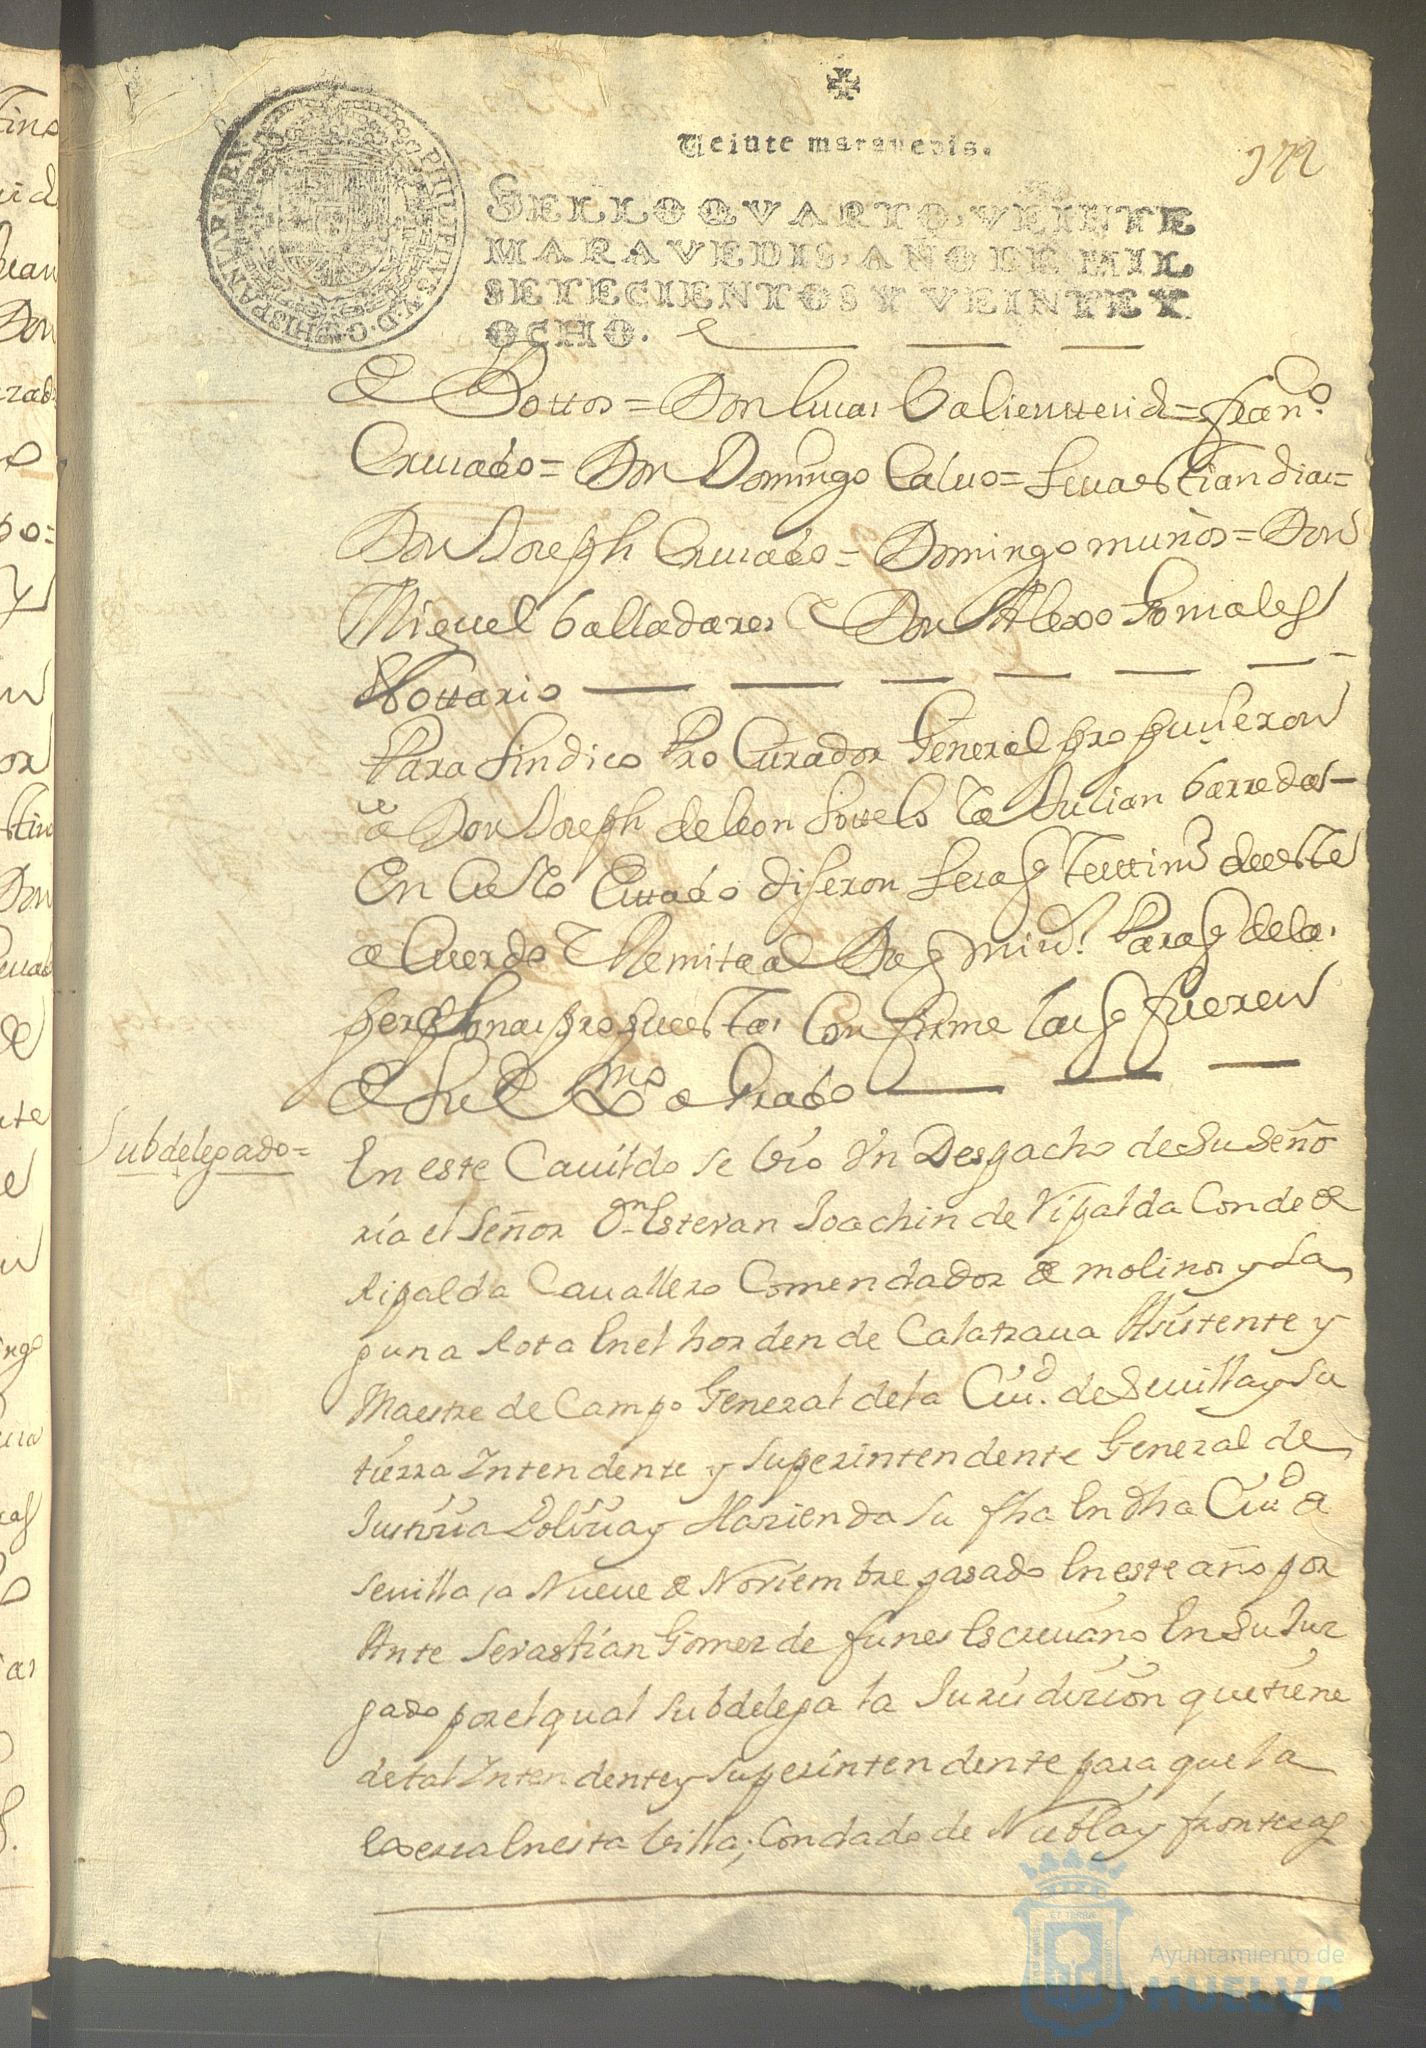 Veinte maravedis.
172
SELLO QVARTO, VEINTE
MARAVEDIS, AÑO DE MIL
SETECIENTOS Y VEINTE Y
OCHO.
PHILIPPUS V D G HISPANIAR REX
Vottos = Don Lucas Valiente = Franco.
Cruzado = Don Domingo Calvo = Sevastian Dias =
Don Joseph Cruzado = Domingo muños = Don
Miguel Valladares Don Alexo Gonzales
Nottario
Para Sindico Procurador General propuсieron
a Don Joseph de leon Sottelo Ea Julian Barredas
En Cuɪo Estado dijeron se saq Testtimo de este
a Cuerdo E Remita al para q de las
personas propuestas Confirme las q fueren
de su Exmo agrado
Subdelegado =
En este Cavildo se vio Un Despacho de Su Seño
ria el Señor Dn Estevan Joachin de Ripalda Conde de
Ripalda Cavallero Comendador de molinos y La
guna Rota En el horden de Calatrava Asistente y
Maestre de Campo General de la Ciud. de Sevilla y su
tierra Intendente y superintendente General de
Justicia Policia y Hazienda su fha En dha Ciud de
Sevilla a Nueve de Noviembre pasado En este año por
Ante Sevastian Gomez de funes Escrivano En Su Juz
gado por el qual subdelega la Jurisdizion que tiene
de tal Intendente y superintendente para que la
Exerza En esta Villa, Condado de Niebla y fronteras
Ayuntamiento de
HUELVA